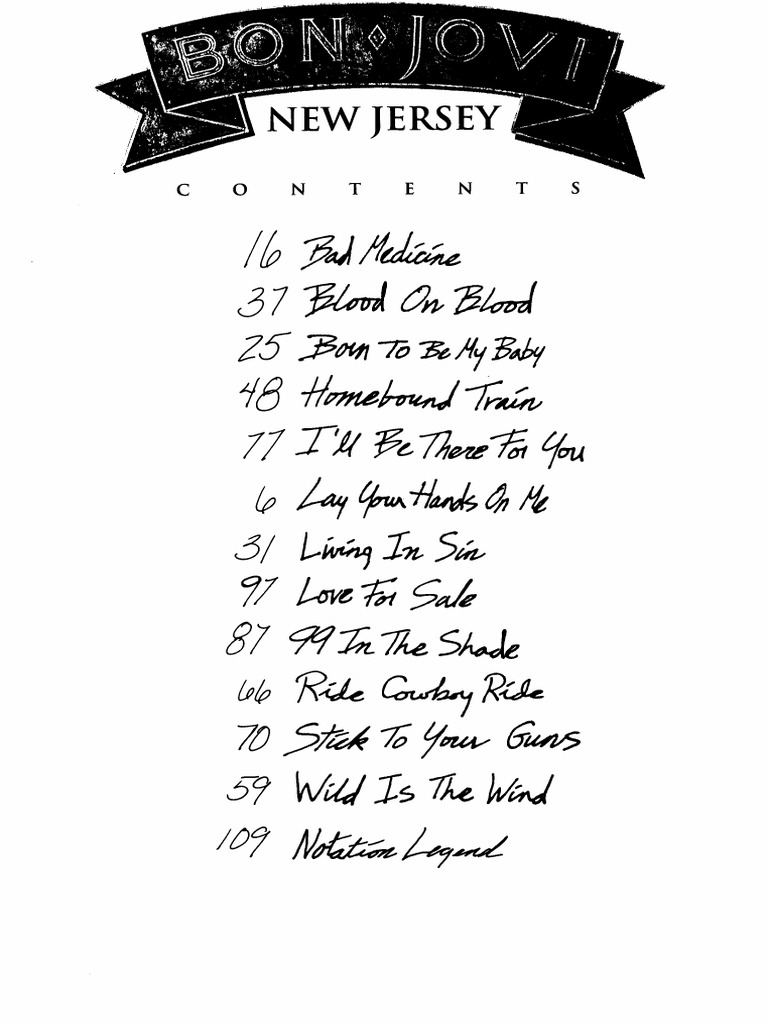 BON JOVI
NEW JERSEY
CONTENTS
16 Bad Medicine
37 Blood On Blood
25 Born To Be My Baby
48 Homebound Train
77 I'll Be There For You
6 Lay Your Hands On Me
31 Living In Sin
97 Love For Sale
87 99 In The Shade
66 Ride Cowboy Ride
70 Stick To Your Guns
59 Wild Is The Wind
109 Notation Legend